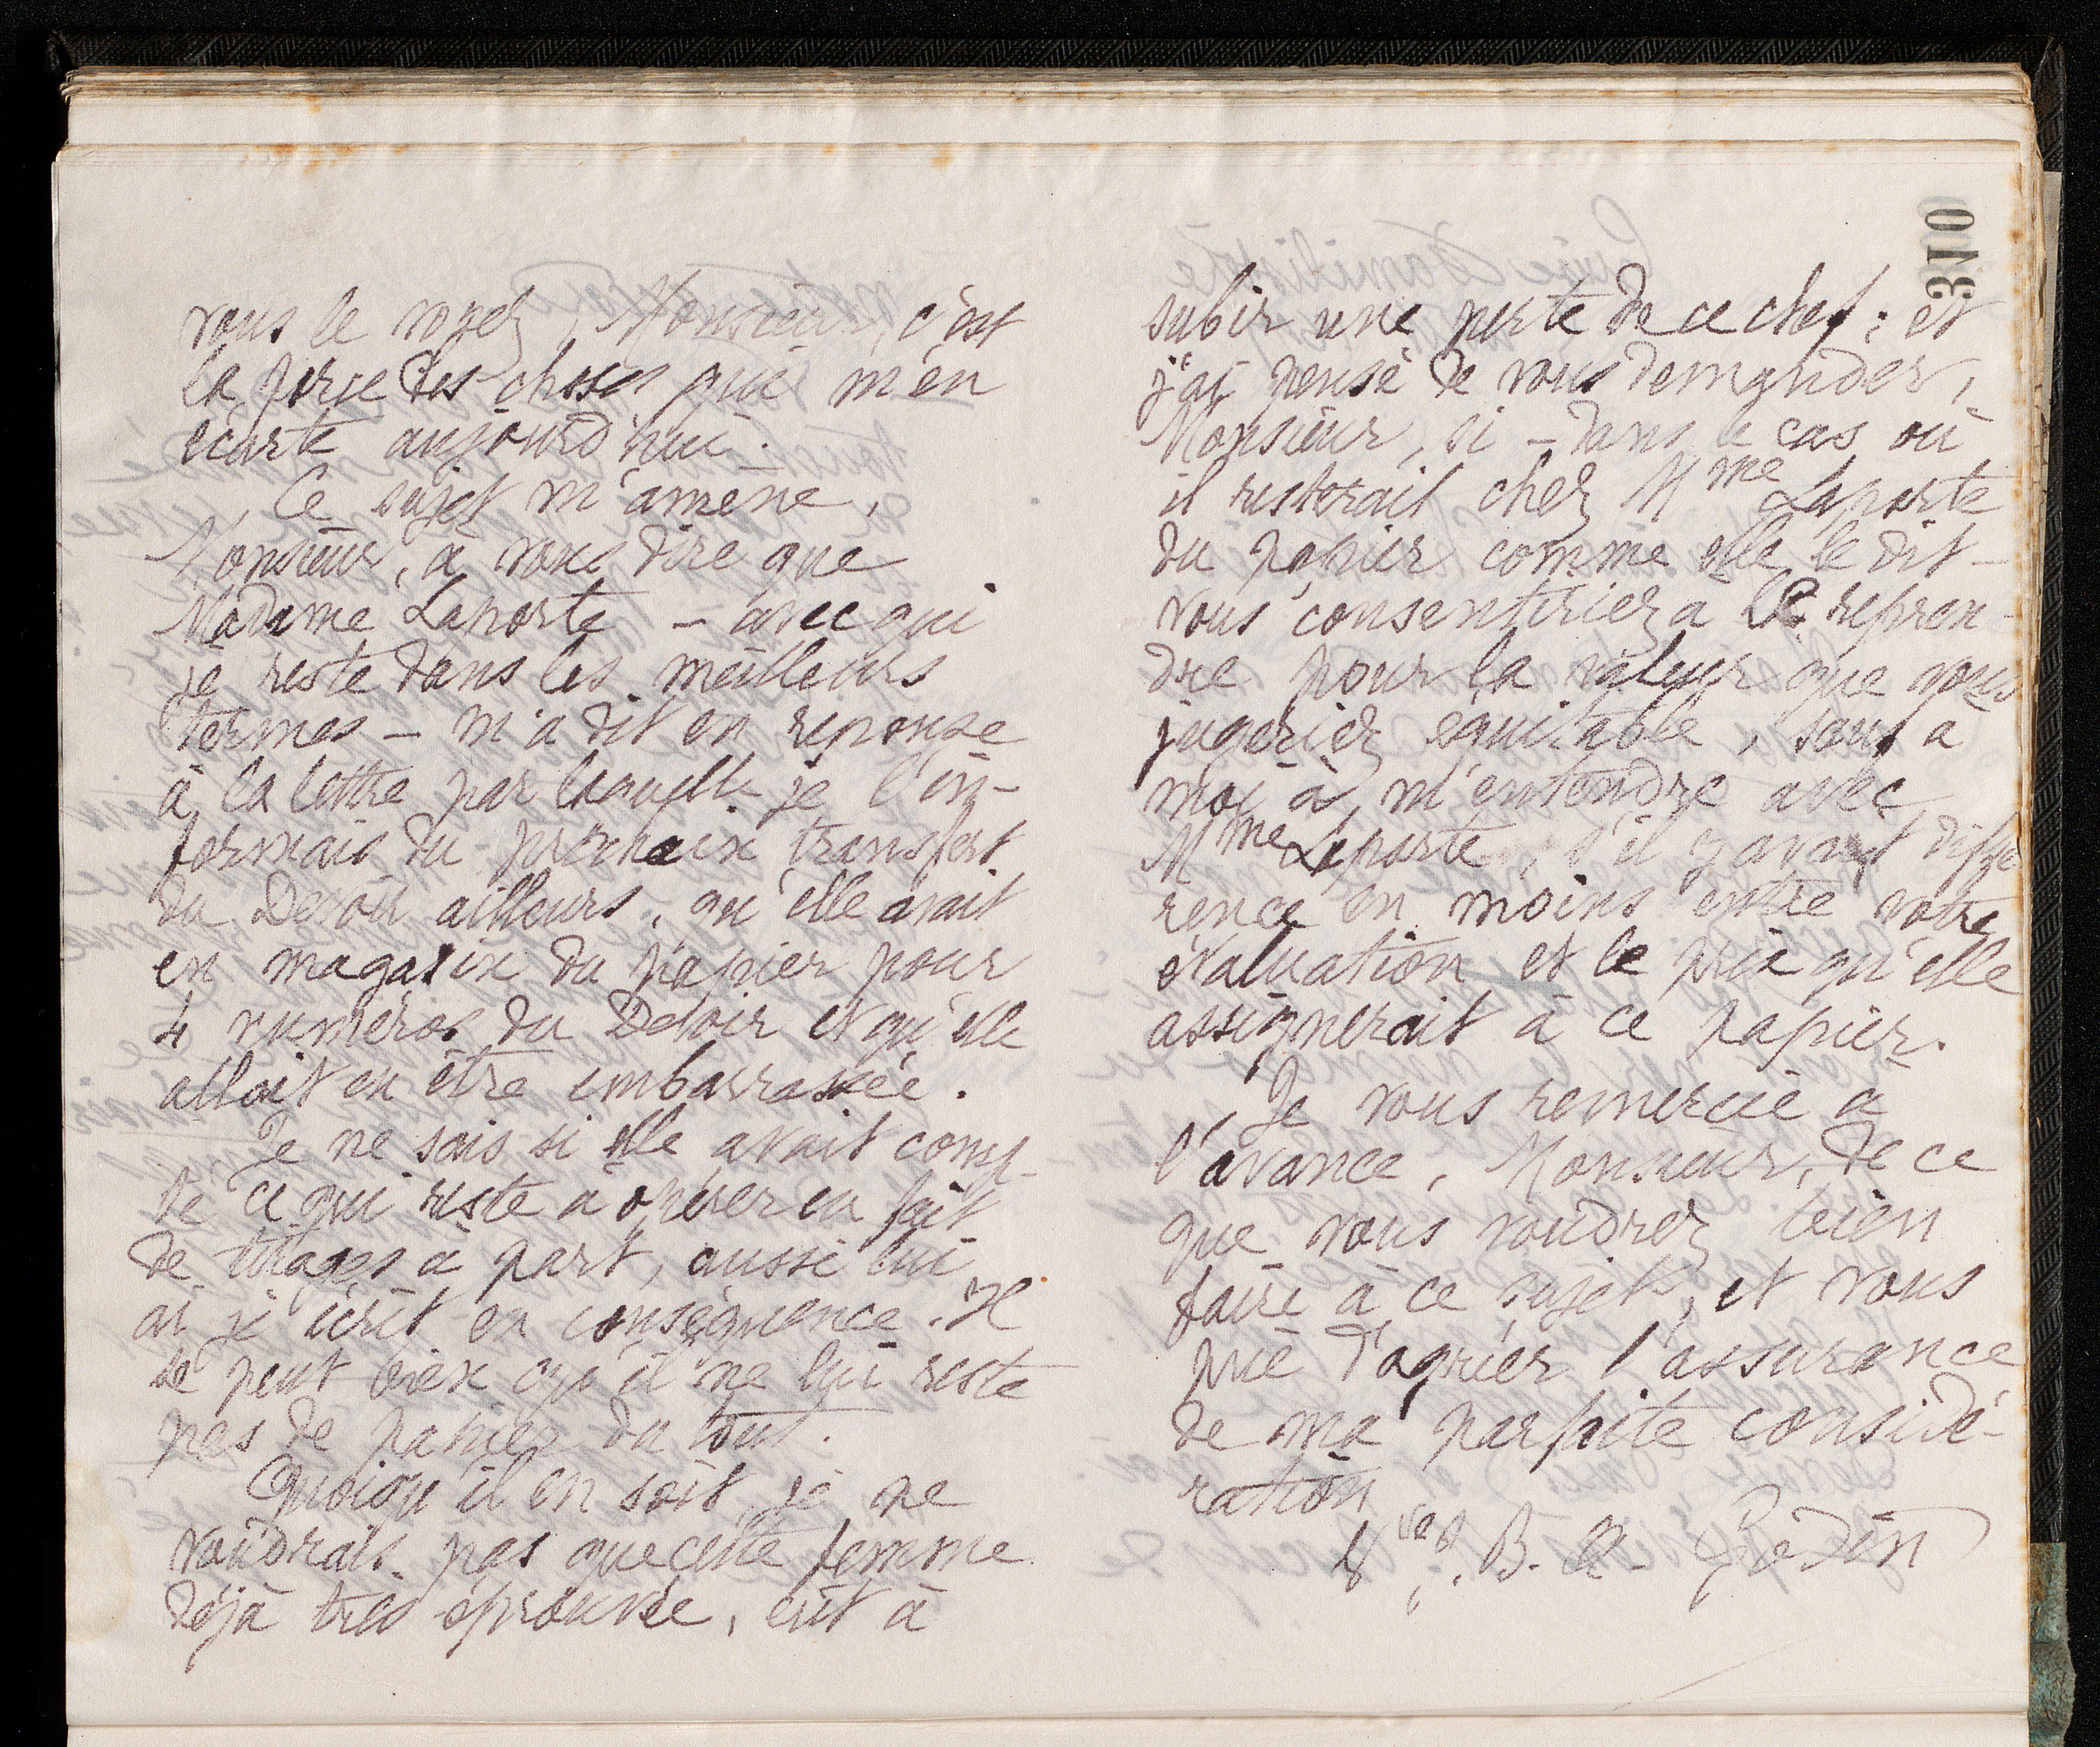 vous le voyez, Monsieur, c'est
la force des choses qui m'en
écarte aujourd'hui.
Ce sujet m'amène,
Monsieur, à vous dire que
Madame Laporte – avec qui
je reste dans les meilleurs
termes – m'a dit en réponse
à la lettre par laquelle je l'in-
formais du prochain transfert
du Devoir ailleurs, qu'elle avait
en magasin du papier pour
4 numéros du Devoir et qu'elle
allait en être embarrassée.
Je ne sais si elle avait comp-
té ce qui reste à opérer en fait
de tirages à part, aussi lui
ai je écrit en conséquence. Il
se peut bien qu'il ne lui reste
pas de papier du tout.
Quoiqu'il en soit, je ne
voudrais pas que cette femme
déjà très éprouvée, eût à
310
subir une perte de ce chef; et
j'ai pensé de vous demander,
Monsieur, si – dans le cas où
il resterait chez Mme Laporte
du papier comme elle le dit –
vous consentiriez à le repren-
dre pour la valeur que vous
jugeriez équitable, sauf à
moi à m'entendre avec
Mme Laporte, s'il y avait diffé
rence en moins entre votre
évaluation et le prix qu'elle
assignerait à ce papier.
Je vous remercie à
l'avance, Monsieur, de ce
que vous voudrez bien
faire à ce sujet, et vous
prie d'agréer l'assurance
de ma parfaite considé-
ration
Vve J. B. A. Godin